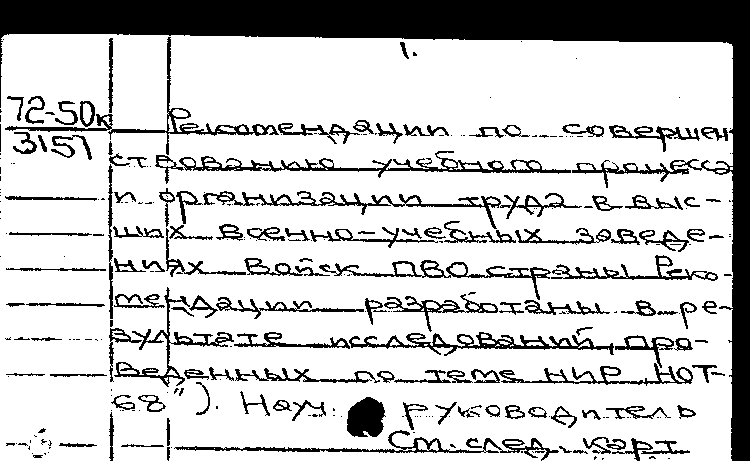 1.
72-50к
3157
Рекомендации по совершен
ствованию учебного процесса
и организации труда в выс-
ших военно-учебных заведе-
ниях Войск ПВО страны. Реко-
мендации разработаны в ре-
зультате исследований, про-
веденных по теме НИР „НОТ-
68"). Науч. руководитель
См. след. карт